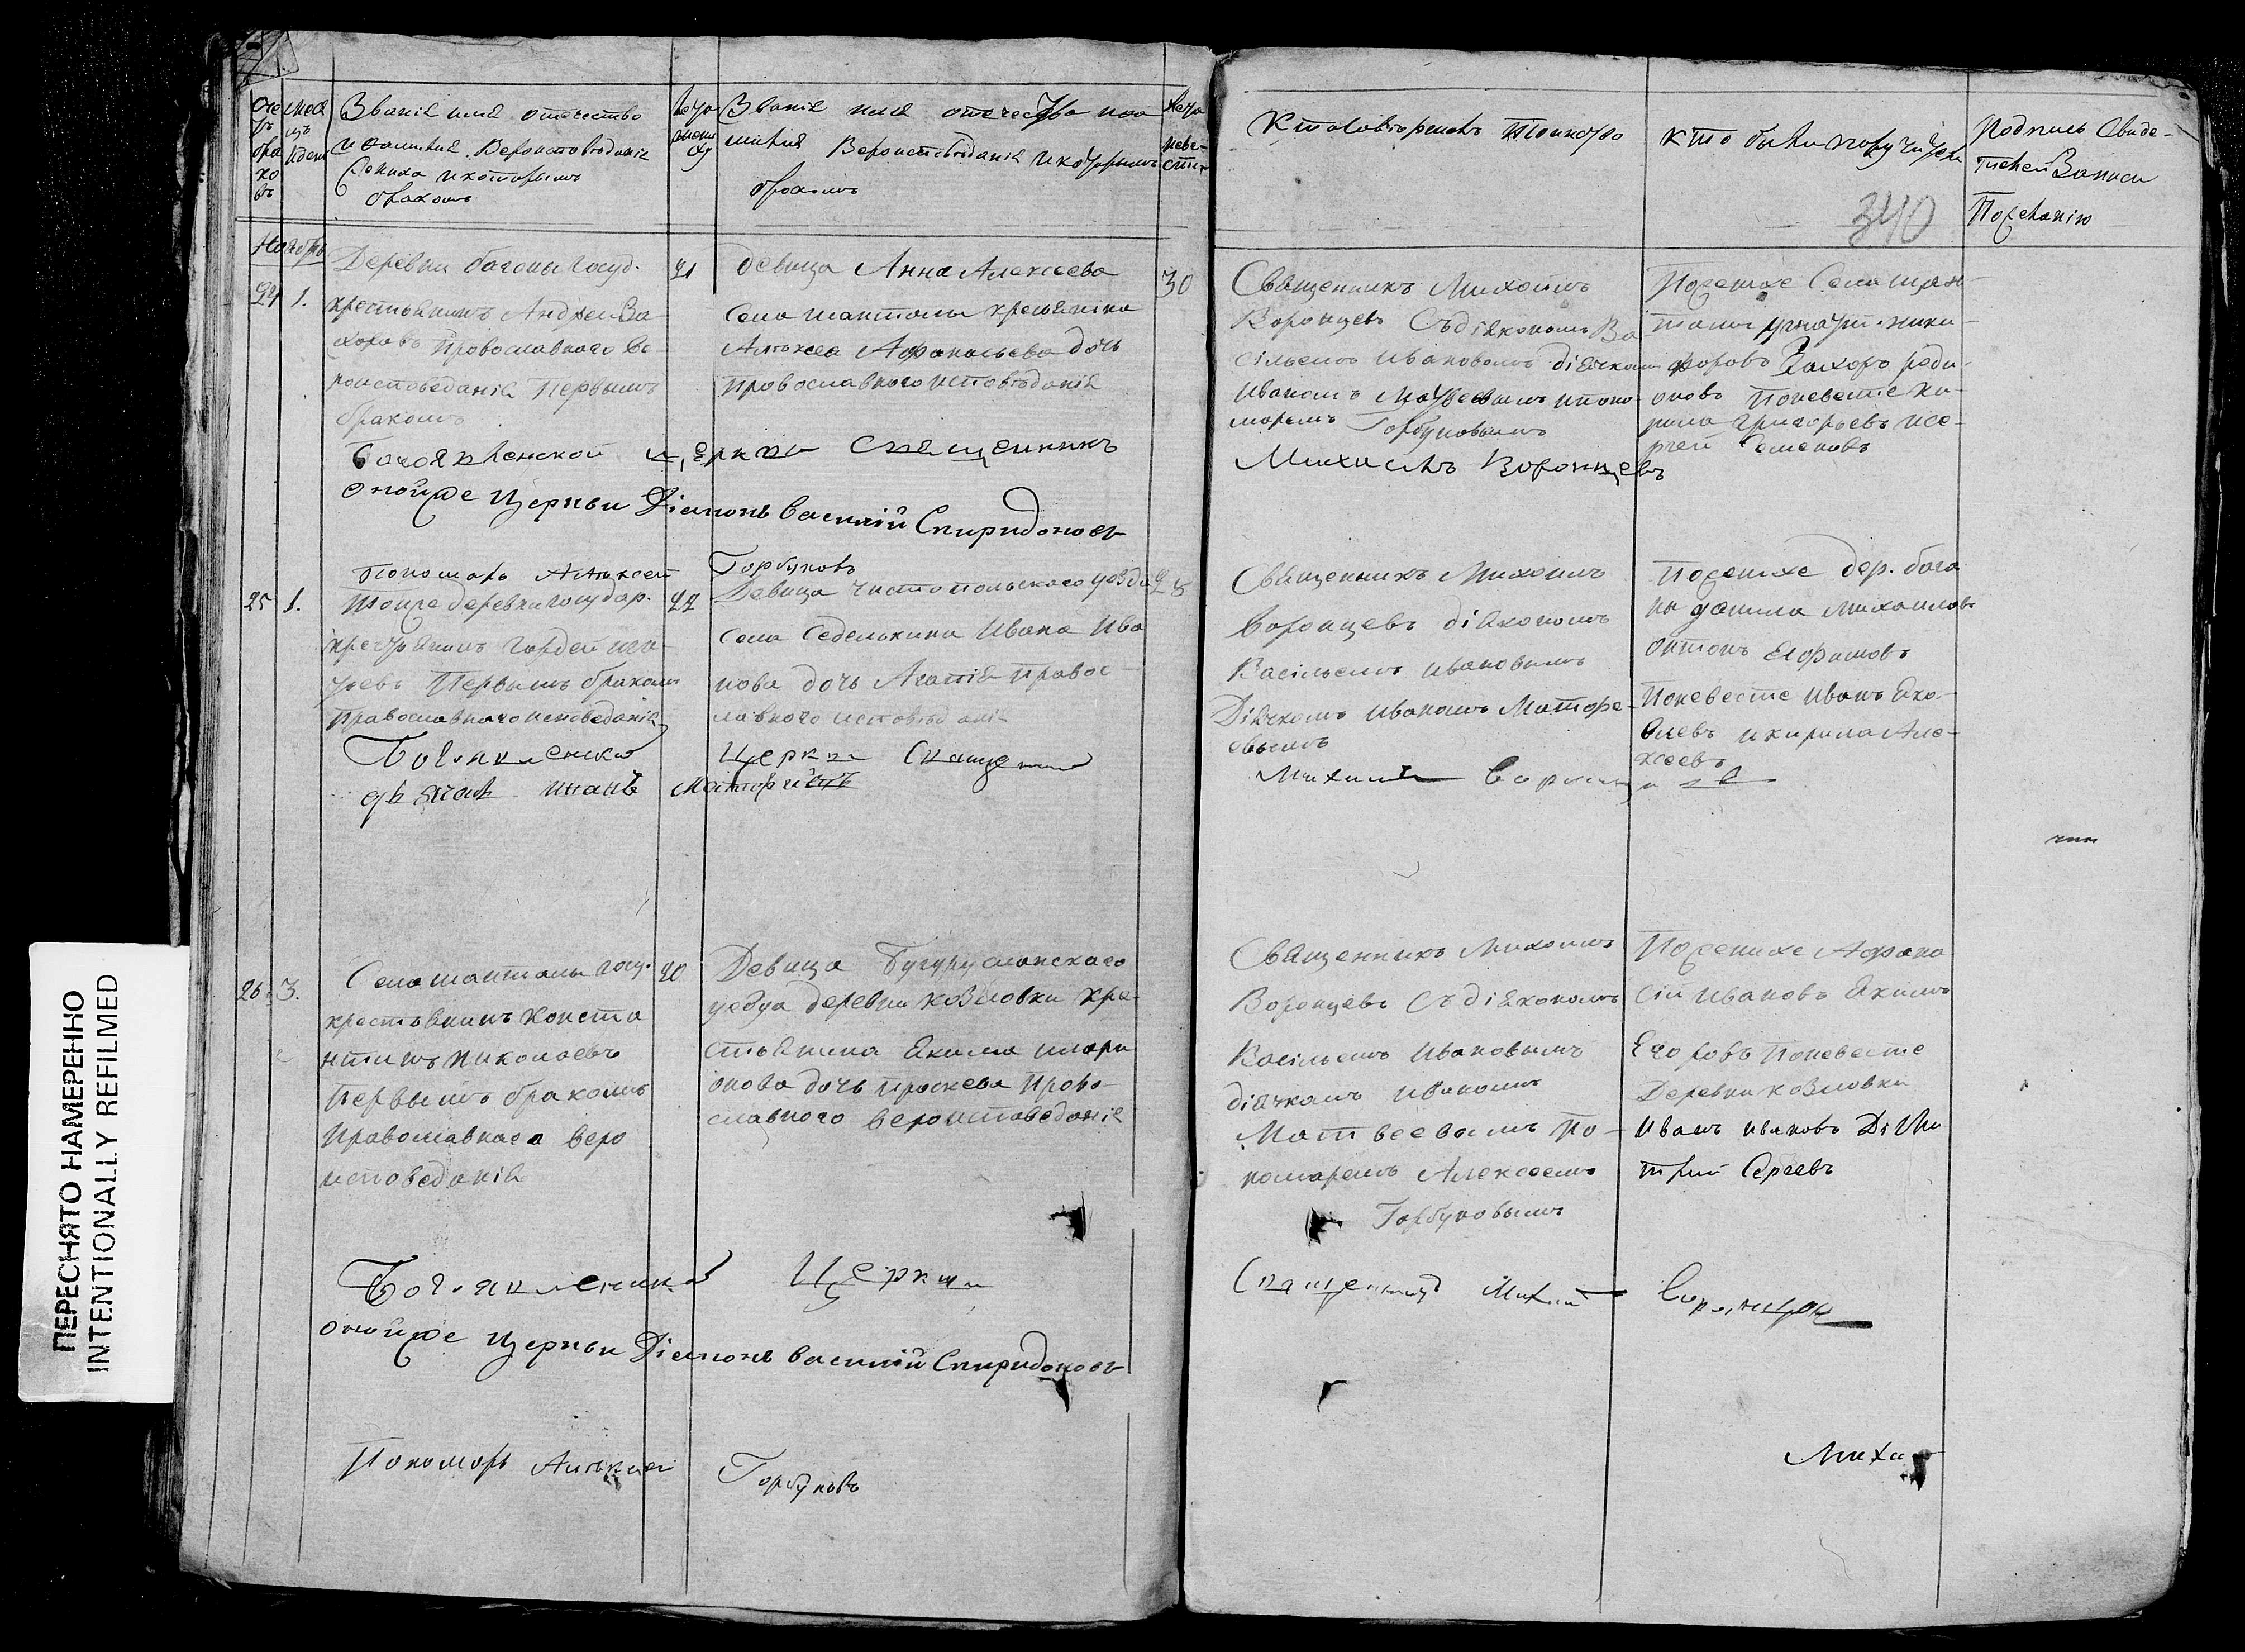 Званія имя отечество
и Фамилія. Вероисповѣданіе
жениха и которымъ
бракомъ
Званія имя отечество
милия Вероисповѣданія и которымъ
бракомъ
невес-
Кто совершалъ
кто были поручители
Подпись Свиде-
телей Записи
По желанію
340
Ноябрь
24 1.
Деревни госуд.
крестьянинъ Андрей За-
харовъ Православнаго Ве-
роисповеданія Первымъ
бракомъ
21
девица Анна Алексеева
села шанталы крестьянина
Алексея Афанасьева дочь
православного исповѣданія
30
Священникъ Михаилъ
Воронцевъ Съ діякономъ Ва
сільемъ Ивановымъ діячкомъ
Иваномъ Матвеевымъ и поно-
маремъ Горбуновымъ
По женихе Села шан-
талы ники-
форовъ родио-
оновъ По невесте ки-
рила Григорьевъ и се-
ргей Семеновъ
Богоявленской Церкви Священникъ
Михаилъ Воронцевъ
оной же Церкви Діяконъ Василій Спиридоновъ
Пономарь Алѣксей Горбуновъ
25 1.
Той же деревни государ.
крестьянинъ Гордей игна-
тьевъ Первымъ бракомъ
Православнаго исповеданія
22
Девица Чистопольского уезда
села Седелькина Ивана Ива
нова дочь Агапія правос-
лавного исповѣданія
25
Священникъ Михаилъ
Воронцевъ діякономъ
Васільемъ Ивановымъ
Діячкомъ Иваномъ Матфе-
евымъ
По женихе дер. бага
ны данила Михаиловъ
антонъ Ефимовъ
По невесте Иванъ Яко-
влевъ и кирила Але-
ксеевъ
Богоявленской Церкви Священникъ
Михаилъ Воронцевъ
дьячокъ Иванъ Матфеевъ
26. 3.
Села шанталы госу.
крестьянинъ Конста
нтинъ Николаевъ
Первымъ бракомъ
Православнаго веро
исповеданія
20
Девица Бугурусланского
уезда деревни козловки кре-
стьянина Якима илари
онова дочь праскева Право-
славного вероисповеданія
Священникъ Михаилъ
Воронцевъ Съ діякономъ
Васільемъ Ивановымъ
діячкомъ Иваномъ
Матвеевымъ По-
номаремъ Алексеемъ
Горбуновымъ
По женихе Афана
сій Ивановъ Якимъ
Егоровъ По невесте
Деревни козловки
Иванъ ивановъ Дими
трий Сергеевъ
Богоявленской Церкви
Священникъ Михаилъ Воронцевъ
оной же Церкви Діяконъ Василій Спиридоновъ
Пономарь Алѣксей Горбуновъ
Михаи
ПЕРЕСНЯТО НАМЕРЕННО
INTENTIONALLY REFILMED